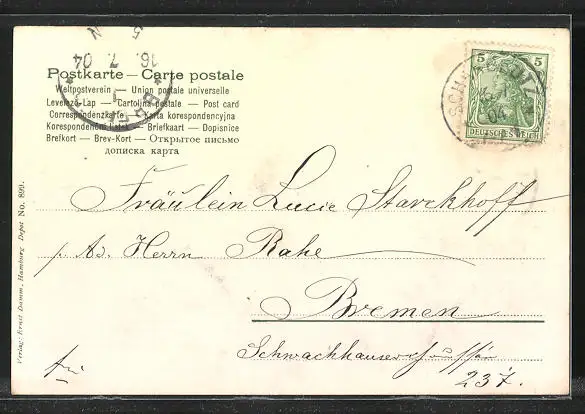 Postkarte — Carte postale
Weltpostverein — Union postale universelle
Levelező-Lap — Cartolina postale — Post card
Correspondenzkarte — Karta korespondencyjna
Korespondenční lístek — Briefkaart — Dopisnice
Brefkort — Brev-Kort — Открытое письмо
дописка карта
N 5
16. 7. 04
5 5
DEUTSCHES REICH
04
Fräulein Lucie Starckhoff
p. Ad. Herrn Rahe
Bremen
Schwachhauserchaussée
237.
frei
Verlag: Ernst Damm, Hamburg Depot No. 899.